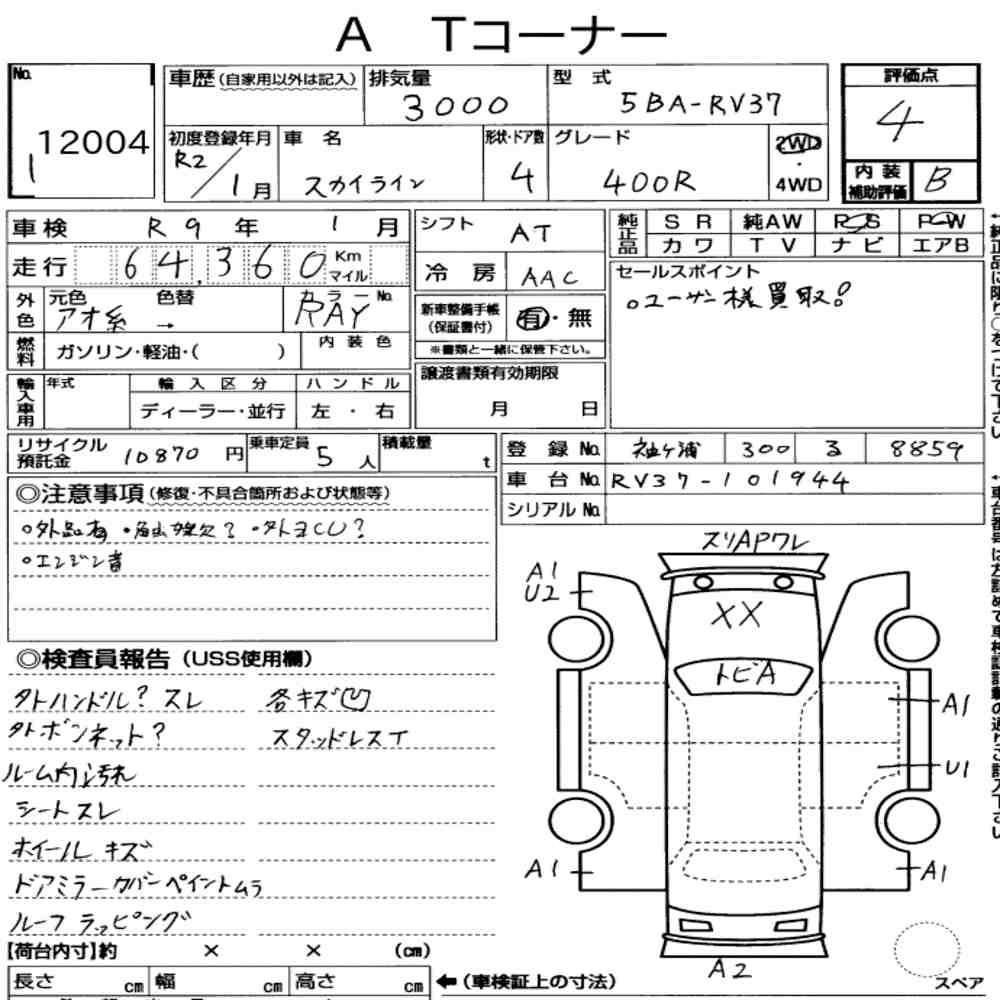 A Tコーナー
No. 12004
1
車歴 (自家用以外は記入)
排気量 3000
型式 5BA-RV37
評価点 4
初度登録年月 R2/1月
車名 スカイライン
形状・ドア数 4
グレード 400R
2WD・4WD
内装補助評価 B
車検 R9年 1月
走行 64,360 Km マイル
シフト AT
冷房 AAC
純正品 SR 純AW PS PW
カワ TV ナビ エアB
セールスポイント
。ユーザー様買取!
外色 元色 アオ系 色替 → カラーNo. RAY
燃料 ガソリン・軽油・( ) 内装色
新車整備手帳(保証書付) 有・無
※書類と一緒に保管下さい。
譲渡書類有効期限
月 日
輸入車用 年式 輸入区分 ハンドル
ディーラー・並行 左・右
リサイクル預託金 10870円
乗車定員 5人
積載量 t
登録No. 袖ヶ浦 300 る 8859
車台No. RV37-101944
シリアルNo.
◎注意事項(修復・不具合箇所および状態等)
。外品有
。エンジン音
◎検査員報告(USS使用欄)
外ハンドル? スレ
外ボンネット?
ルーム内汚れ
シートスレ
ホイールキズ
ドアミラーカバーペイントムラ
ルーフラッピング
各キズ凹
スタッドレスT
スリAPワレ
A1
U2
XX
トビA
A1
U1
A1
A1
A2
スペア
【荷台内寸】約 × × (cm)
長さ cm 幅 cm 高さ cm
←(車検証上の寸法)